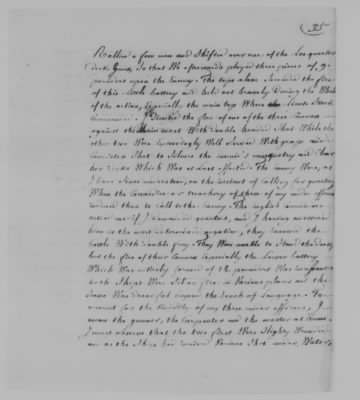 35
Rallied a few men and Shifted over one of the Lee quarter
deck Guns, So that We afterwards played three pieces of 9
pounders upon the Enemy. The tops alone Seconded the fire
of this little battery and held out bravely During the Whole
of the action, Especially the main top Where Lieut. Stack
Commanded. I Directed the fire of one of the three Cannon
against the main mast With double headed Shot While the
other two Were Exceedingly Well Served With grape and
Cannister Shot to Silence the enemie's musquetry and Clear
her decks Which Was at last effected. The enemy Were, as
I have Since understood, on the instant of Calling for quarters
When the Cowardice or treachery of three of my under officers
induced them to Call to the Enemy. The English Commodore
asked me if I demanded quarters, and I having answered
him in the most determined negative, they renewed the
battle With double fury. They Were unable to Stand the deck
but the fire of their Cannon Especially the lower battery
Which Was entirely formed of 18 pounders Was incessant
both Ships Were Set on fire in Various places and the
Scene Was dreadful beyond the reach of Language. To
account for the timidity of my three under officers, I
mean the gunner, the Carpenter and the master at Arms
I must observe that the two first Were Slightly Wounded
and as the Ship had received Various Shot under Water,